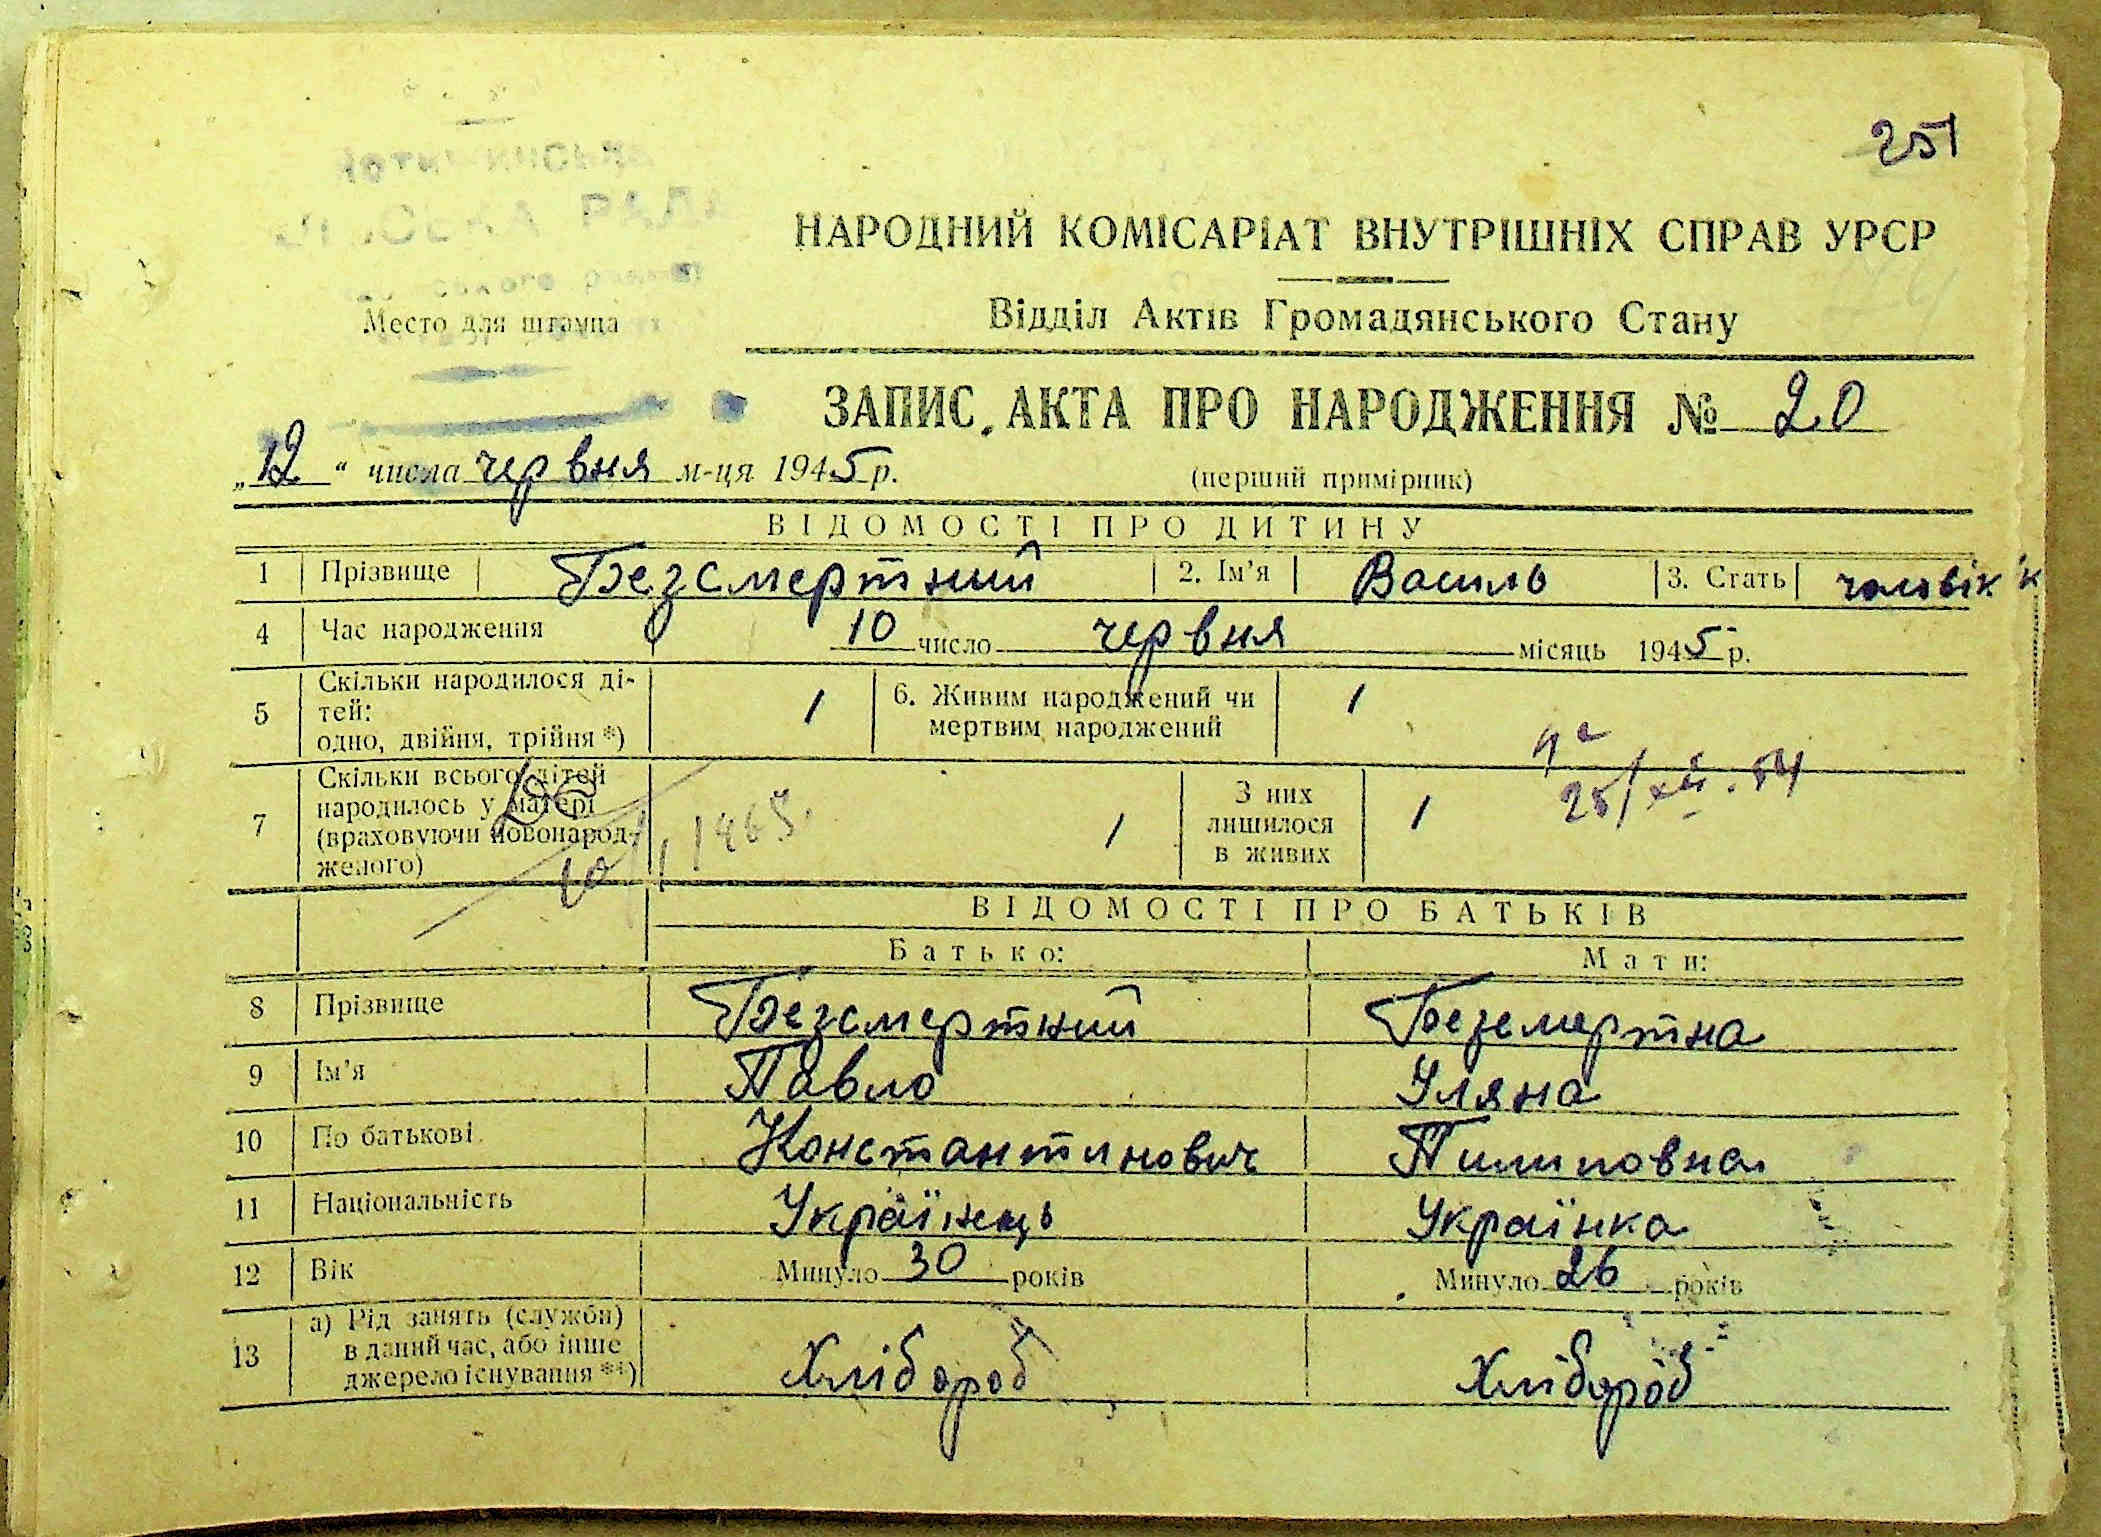 251
РАДА
НАРОДНИЙ КОМІСАРІАТ ВНУТРІШНІХ СПРАВ УРСР
Відділ Актів Громадянського Стану
Место для штампа
ЗАПИС АКТА ПРО НАРОДЖЕННЯ № 20
„12“ числа червня м-ця 1945 р.
(перший примірник)
ВІДОМОСТІ ПРО ДИТИНУ
1 Прізвище Безсмертний 2. Ім'я Василь 3. Стать чоловік
4 Час народження 10 число червня місяць 1945 р.
5 Скільки народилося ді-
тей:
одно, двійня, трійня *)
1
6. Живим народжений чи
мертвим народжений
1
25/XII.54
7 Скільки всього дітей
народилось у матері
(враховуючи новонарод-
женого)
1
З них
лишилося
в живих
1
10/I 1965.
ВІДОМОСТІ ПРО БАТЬКІВ
Батько: Мати:
8 Прізвище Безсмертний Безсмертна
9 Ім'я Павло Уляна
10 По батькові Константинович Пилиповна
11 Національність Українець Українка
12 Вік Минуло 30 років Минуло 26 років
13 а) Рід занять (служби)
в даний час, або інше
джерело існування **)
Хлібороб Хлібороб